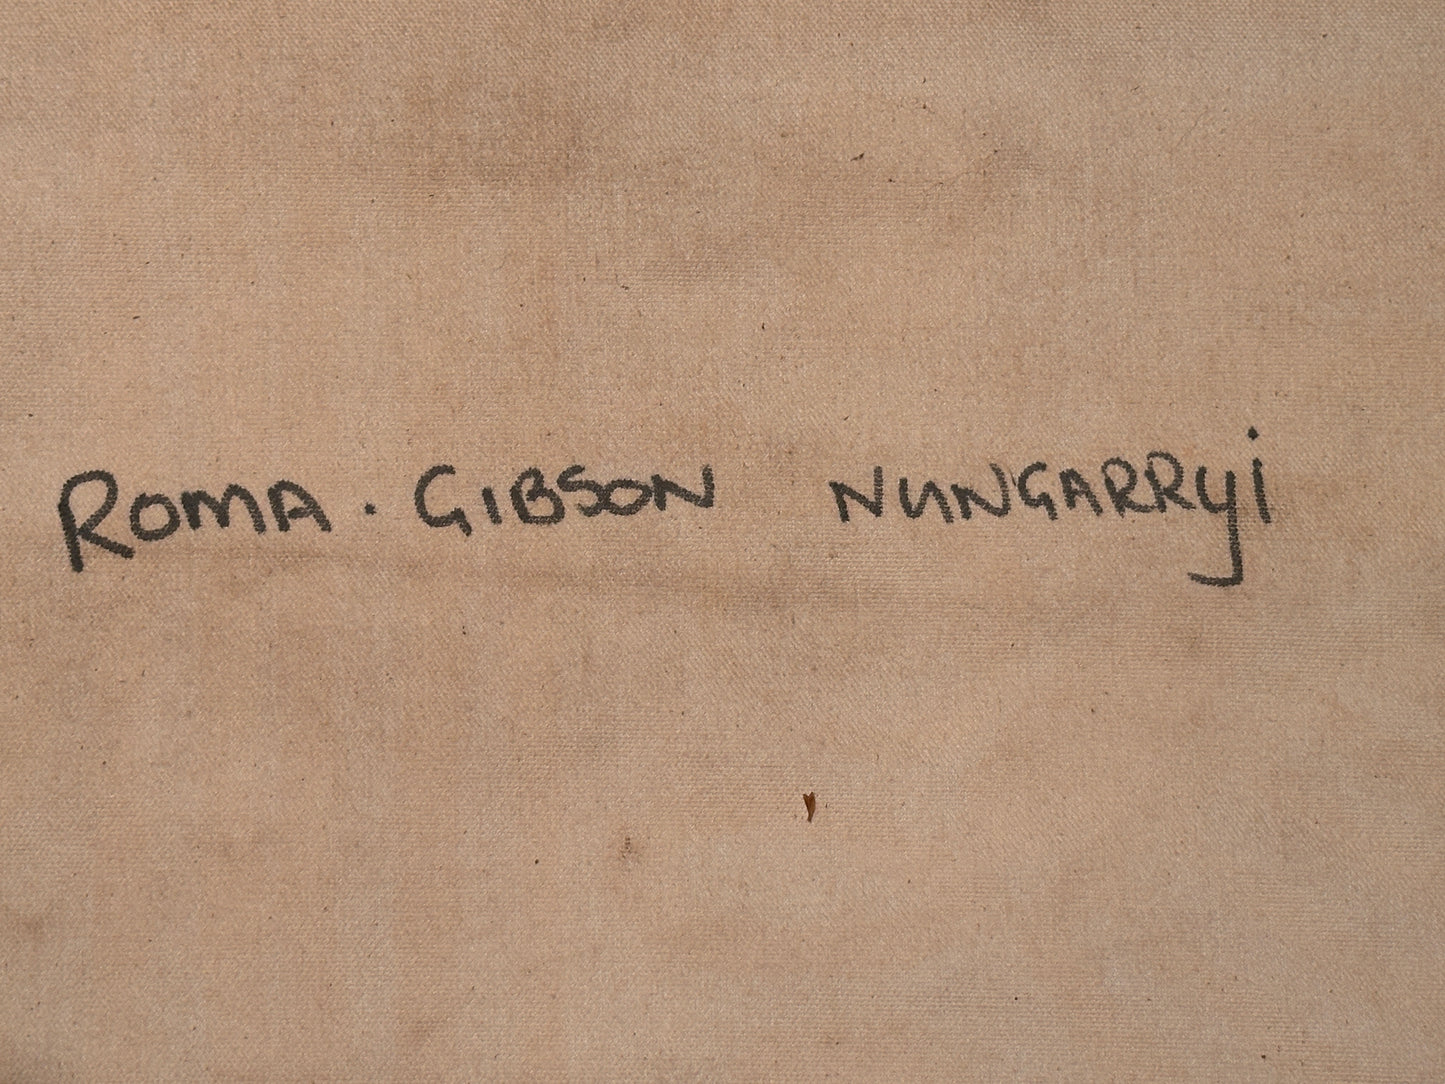 ROMA. GIBSON NUNGARRYi